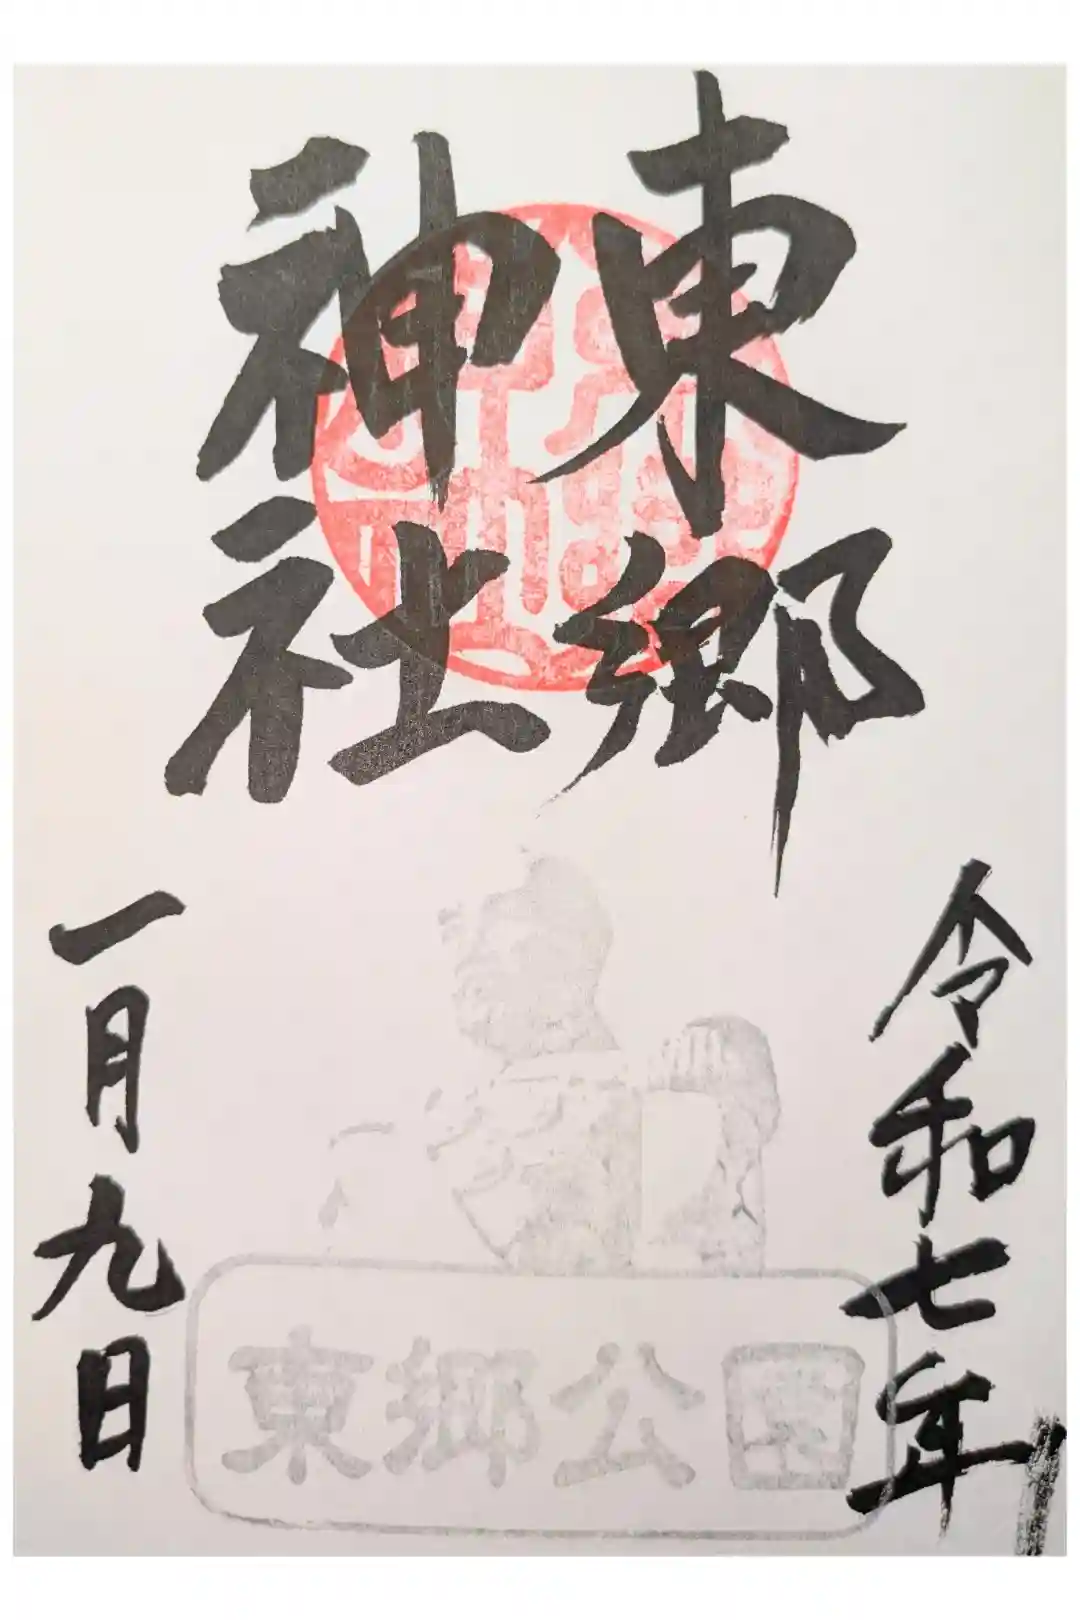 令和七年
東郷
神社
一月九日
東郷公園